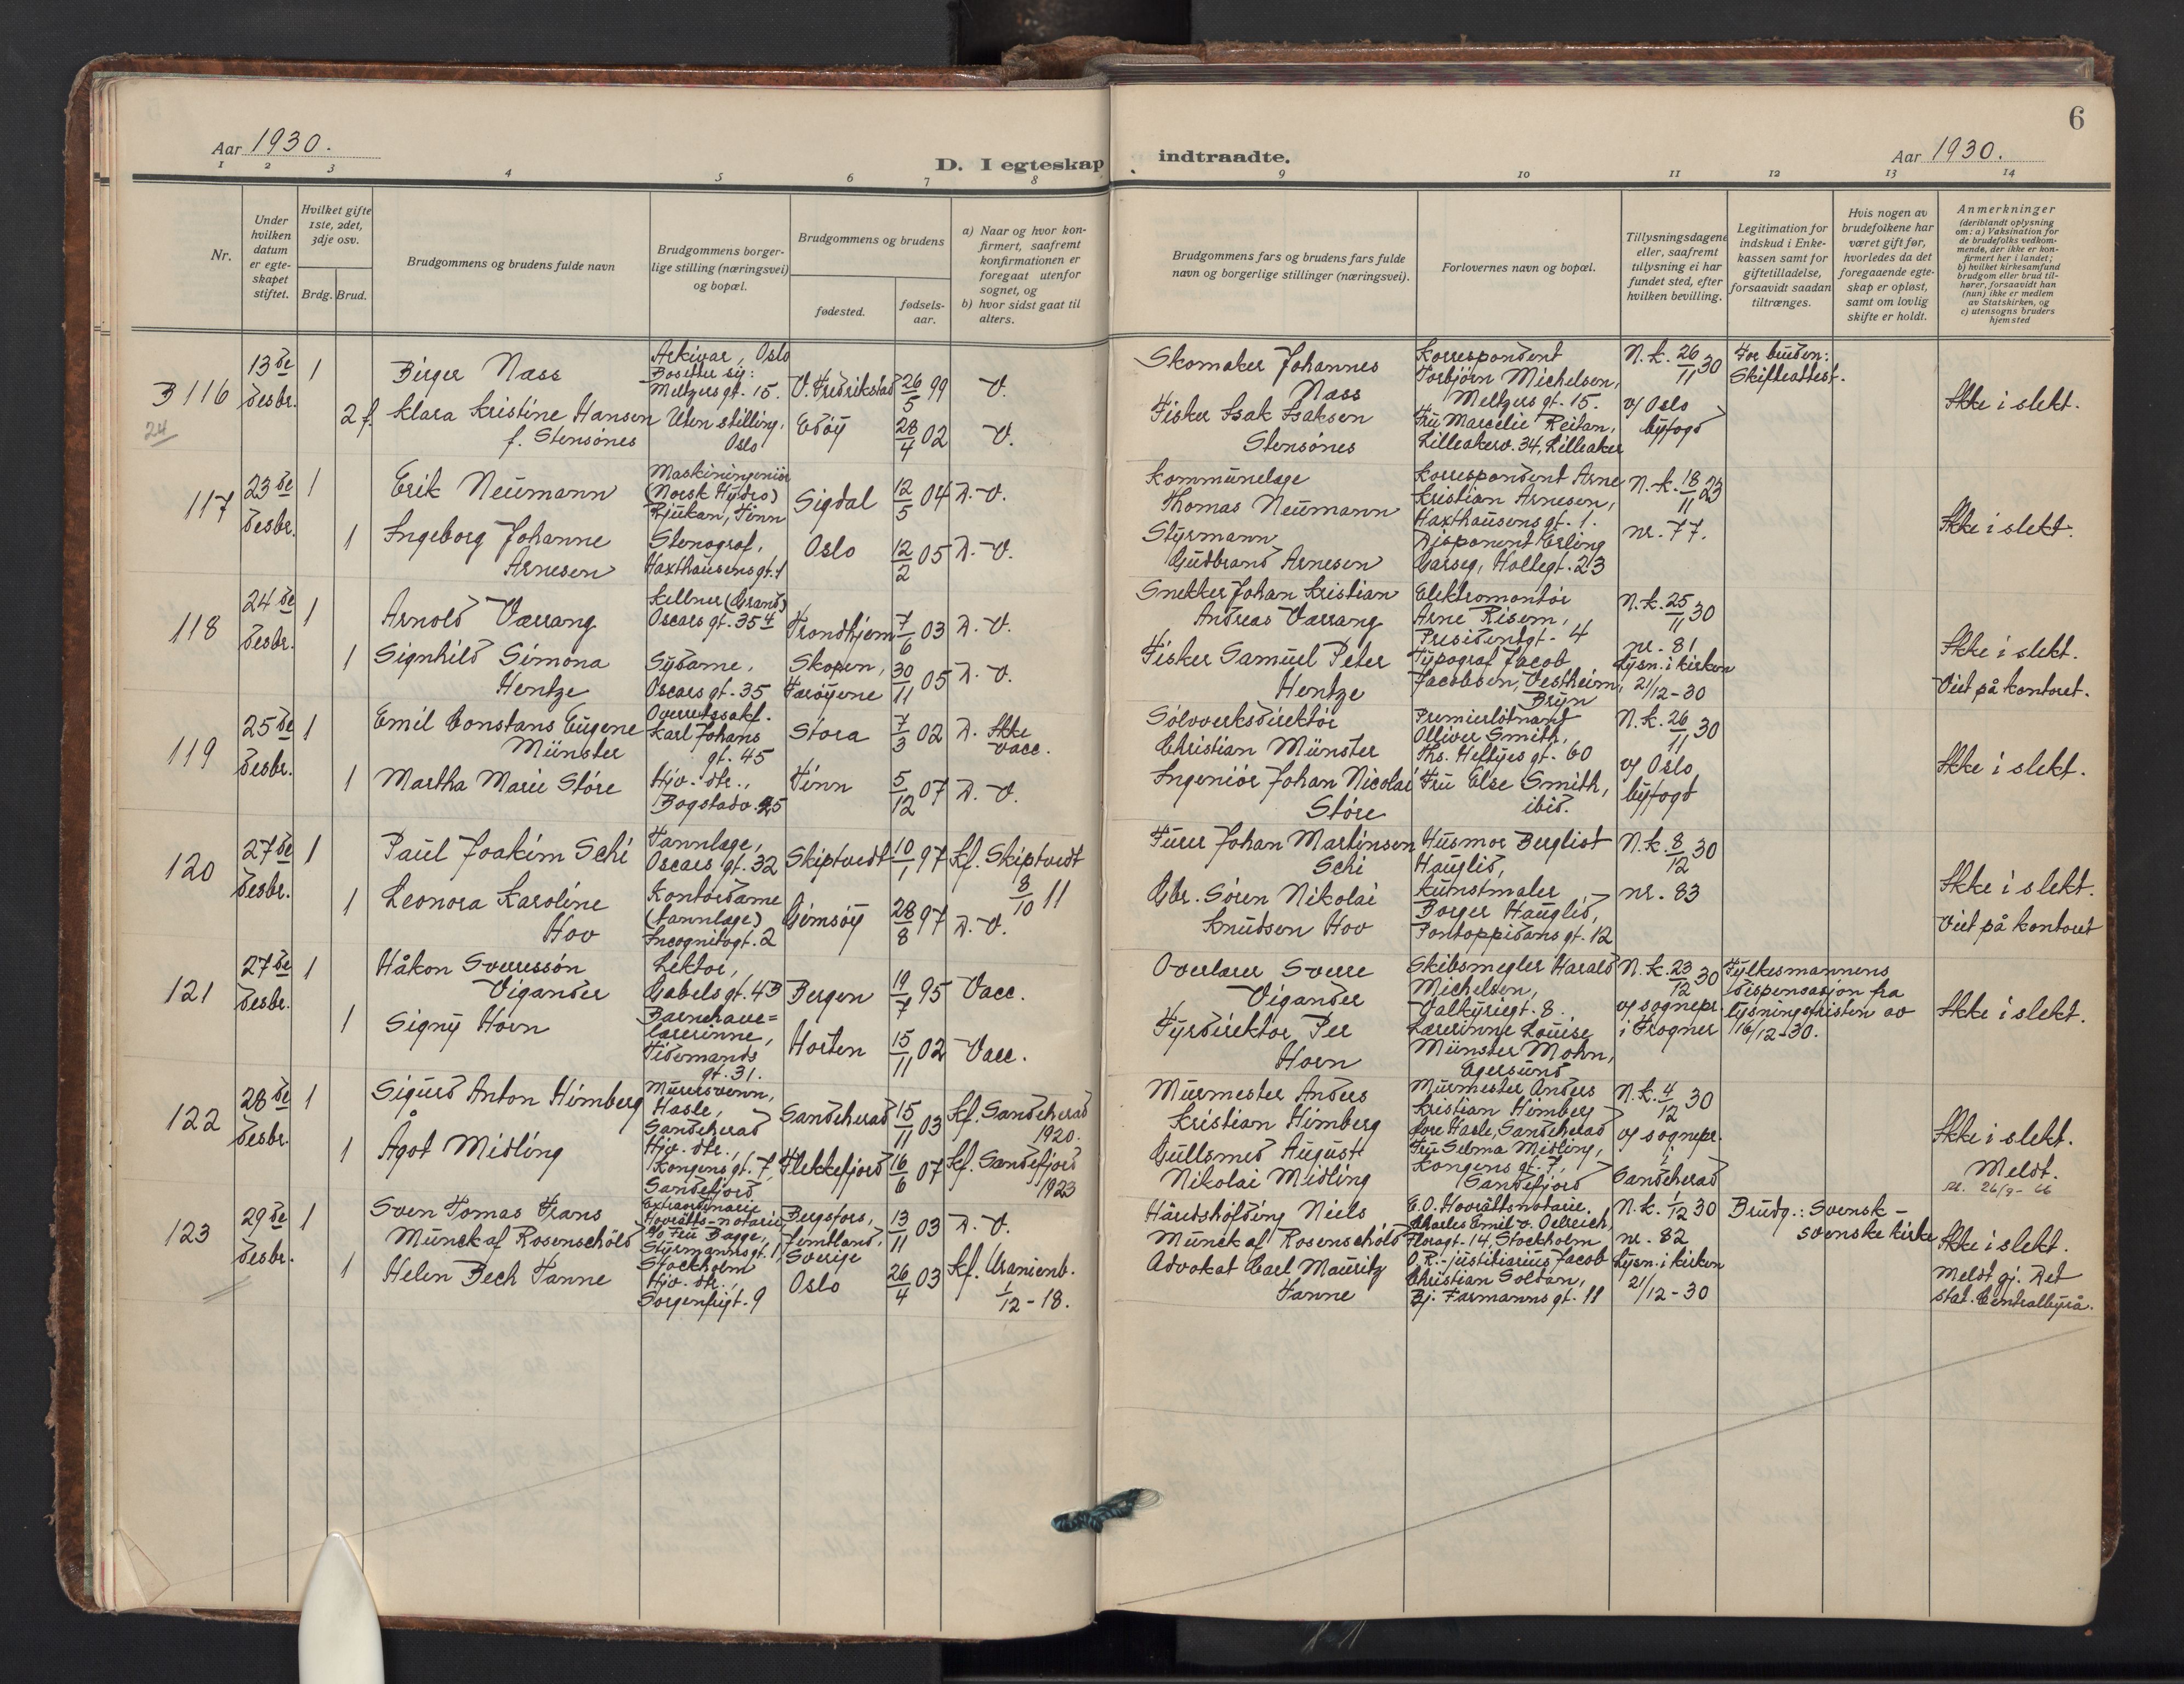 Aar 1930.
D. I egteskap indtraadte.
Aar 1930.
6
1 2 3 4 5 6 7 8 9 10 11 12 13 14
Nr.
Under hvilken datum er egte-skapet stiftet.
Hvilket gifte 1ste, 2det, 3dje osv.
Brdg. Brud.
Brudgommens og brudens fulde navn
Brudgommens borger-lige stilling (næringsvei) og bopæl.
Brudgommens og brudens
fødested.
fødsels-aar.
a) Naar og hvor kon-firmert, saafremt konfirmationen er foregaat utenfor sognet, og
b) hvor sidst gaat til alters.
Brudgommens fars og brudens fars fulde navn og borgerlige stillinger (næringsvei).
Forlovernes navn og bopæl.
Tillysningsdagene eller, saafremt tillysning ei har fundet sted, efter hvilken bevilling.
Legitimation for indskud i Enke-kassen samt for giftetilladelse, forsaavidt saadan tiltrænges.
Hvis nogen av brudefolkene har været gift før, hvorledes da det foregaaende egte-skap er opløst, samt om lovlig skifte er holdt.
Anmerkninger (deriblandt oplysning om: a) Vaksination for de brudefolks vedkom-mende, der ikke er kon-firmert her i landet; b) hvilket kirkesamfund brudgom eller brud til-hører, forsaavidt han (hun) ikke er medlem av Statskirken, og c) utensogns bruders hjemsted
B 116
24
13de desbr.
1
Birger Næss
Arkivar, Oslo
Bosetter sig:
Meltzers gt. 15.
V. Fredrikstad
26/5 99
V.
Skomaker Johannes
Næss
Korrespondent
Torbjørn Michelsen,
Meltzers gt. 15.
N.k. 26/11 30
v/ Oslo
byfogd
For bruden:
Skifteattest.
Ikke i slekt.
2 f.
Klara Kristine Hansen
f. Stensónes
Uten stilling,
Oslo
Edöy
28/4 02
V.
Fisker Isak Isaksen
Stensónes
Frü Marcelie Reitan,
Lilleakerv. 34, Lilleaker
117
23de desbr.
1
Erik Neumann
Maskiningeniör
(Norsk Hydro)
Rjukan, Tinn
Sigdal
12/5 04
D. V.
Kommünelæge
Thomas Neumann
Korrespondent Arne
Kristian Arnesen,
Haxthausens gt. 1.
N.k. 18/11 23
nr. 77.
Ikke i slekt.
1
Ingeborg Johanne
Arnesen
Stenograf,
Haxthausens gt. 1
Oslo
12/2 05
D. V.
Styrmann
Gudbrand Arnesen
Disponent Erling
Garseg, Hollegt. 23
118
24de desbr.
1
Arnold Værrang
Kellner (Grand)
Oscars gt. 35 4
Trondhjem
7/6 03
D. V.
Snekker Johan Kristian
Andreas Værrang
Elektromontör
Arne Risem,
Presidentgt. 4
N.k. 25/11 30
nr. 81
Lysn. i kirken
21/12-30
Ikke i slekt.
Viet på kontoret.
1
Signhild Simona
Hentze
Sydame,
Oscars gt. 35
Skopen,
Færöyene
30/11 05
D. V.
Fisker Samuel Peter
Hentze
Typograf Jacob
Jacobsen, Vestheim,
Bryn
119
25de desbr.
1
Emil Constans Eugene
Münster
Overretssakf.
Karl Johans
gt. 45
Stora
7/3 02
D. Ikke
vacc.
Sölvverksdirektör
Christian Münster
Premierlöitnant
Olliver Smith,
Ths. Heftyes gt. 60
N.k. 26/11 30
v/ Oslo
byfogd
Ikke i slekt.
1
Martha Marie Störe
Hjv. dtr.,
Bogstadv. 25
Tinn
5/12 07
D. V.
Ingeniör Johan Nicolai
Störe
Frü Else Smith,
ibid.
120
27de desbr.
1
Paul Joakim Schi
Tannlæge,
Oscars gt. 32
Skiptvedt
10/1 97
Kf. Skiptvedt
8/10 11
Furer Johan Martinsen
Schi
Husmor Bergliot
Hauglid,
N.k. 8/12 30
nr. 83
Ikke i slekt.
Viet på kontoret
1
Leonora Karoline
Hov
Kontordame
(tannlæge)
Incognitogt. 2
Gimsöy
28/8 97
D. V.
Gbr. Sören Nikolai
Knudsen Hov
Kunstmaler
Borger Hauglid,
Pontoppidans gt. 12
121
27de desbr.
1
Håkon Sverressön
Vigander
Lektor,
Gabels gt. 43
Bergen
19/7 95
Vacc.
Overlærer Sverre
Vigander
Skibsmegler Harald
Michelsen,
Valkyriegt. 8.
N.k. 23/12 30
v/ sognepr.
i Frogner
Fylkesmannens
dispensasjon fra
lysningsfristen av
16/12-30.
Ikke i slekt.
1
Signy Horn
Barnehave=
lærerinne,
Tidemands
gt. 31.
Horten
15/11 02
Vacc.
Fyrdirektör Per
Horn
Lærerinne Louise
Münster Mohn,
Egersund
122
28de desbr.
1
Sigurd Anton Himberg
Mürersvenn,
Hasle,
Sandeherad
Sandeherad
15/11 03
Kf. Sandeherad
1920.
Mürmester Anders
Kristian Himberg
Mürmester Anders
Kristian Himberg
övre Hasle, Sandeherad
N.k. 4/12 30
v/ sognepr.
i
Sandeherad
Ikke i slekt.
Meldt.
26/9-66
1
Ågot Midling
Hjv. dtr.,
Kongens gt. 7,
Sandefjord
Flekkefjord
16/6 07
Kf. Sandefjord
1923
Gullsmed August
Nikolai Midling
Frü Selma Midling,
Kongens gt. 7,
Sandefjord
123
29de desbr.
1
Sven Tomas Frans
Munck af Rosenschöld
Extraordinarie
Hovrätts-notarie,
c/o Frü Bagge,
Styrmannsgt. 1,
Stockholm
Bergsfors,
Jemtland,
Sverige
13/11 03
D. V.
Häredshöfding Niels
Munck af Rosenschöld
E.O. Hovrättsnotarie,
Charles Emil v. Oelreich,
Floragt. 14, Stockholm
N.k. 1/12 30
nr. 82
Lysn. i kirken
21/12-30
Brudg.: Svensk-
svenske kirke
Ikke i slekt.
Meldt gj. Det
stat. Centralbyrå.
1
Helen Bech Tanne
Hjv. dtr.,
Sorgenfrigt. 9
Oslo
26/4 03
Kf. Uranienb.
1/12-18.
Advokat Carl Mauritz
Tanne
O.R.-justitiarius Jacob
Christian Soldan,
Bj. Farmanns gt. 11